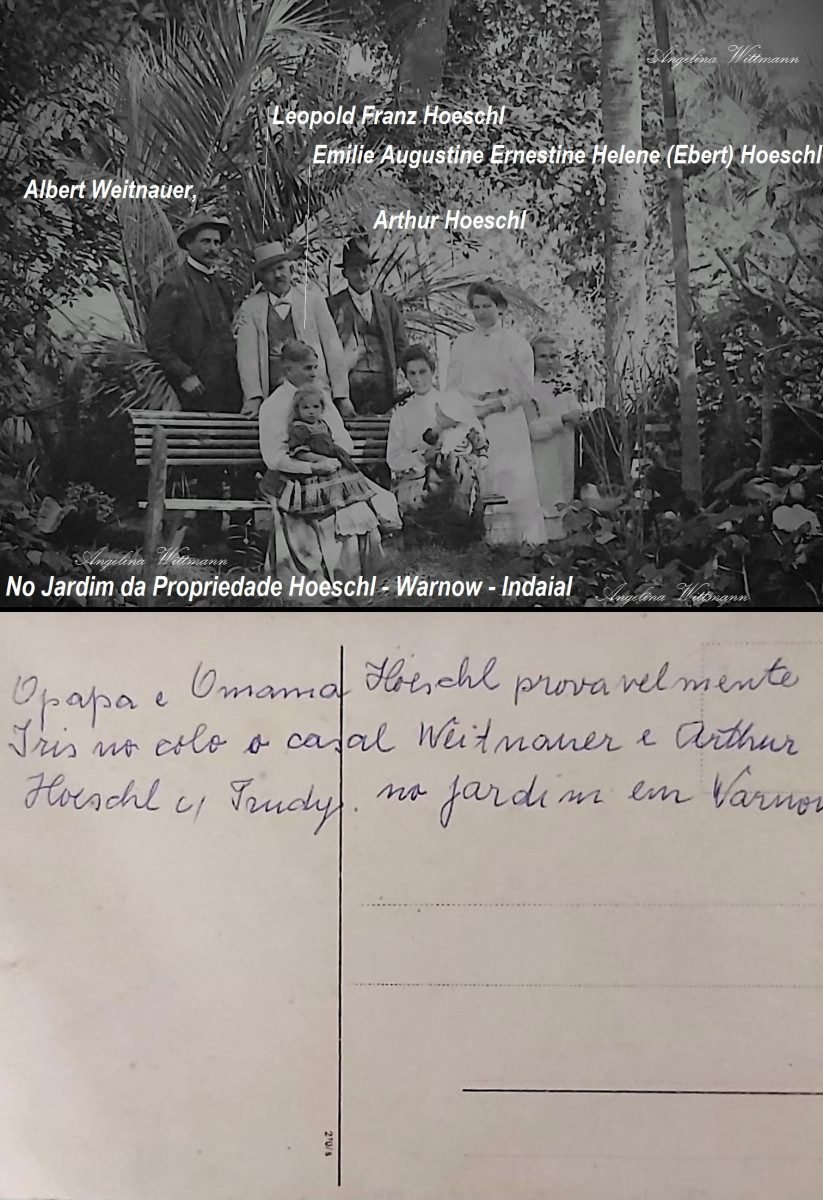 Angelina Wittmann
Leopold Franz Hoeschl
Emilie Augustine Ernestine Helene (Ebert) Hoeschl
Albert Weitnauer,
Arthur Hoeschl
Angelina Wittmann
No Jardim da Propriedade Hoeschl - Warnow - Indaial
Angelina Wittmann
Opapa e Omama Hoeschl provavelmente
Iris no colo o casal Weitnauer e Arthur
Hoeschl c/ Trudy. no jardim em Warnow